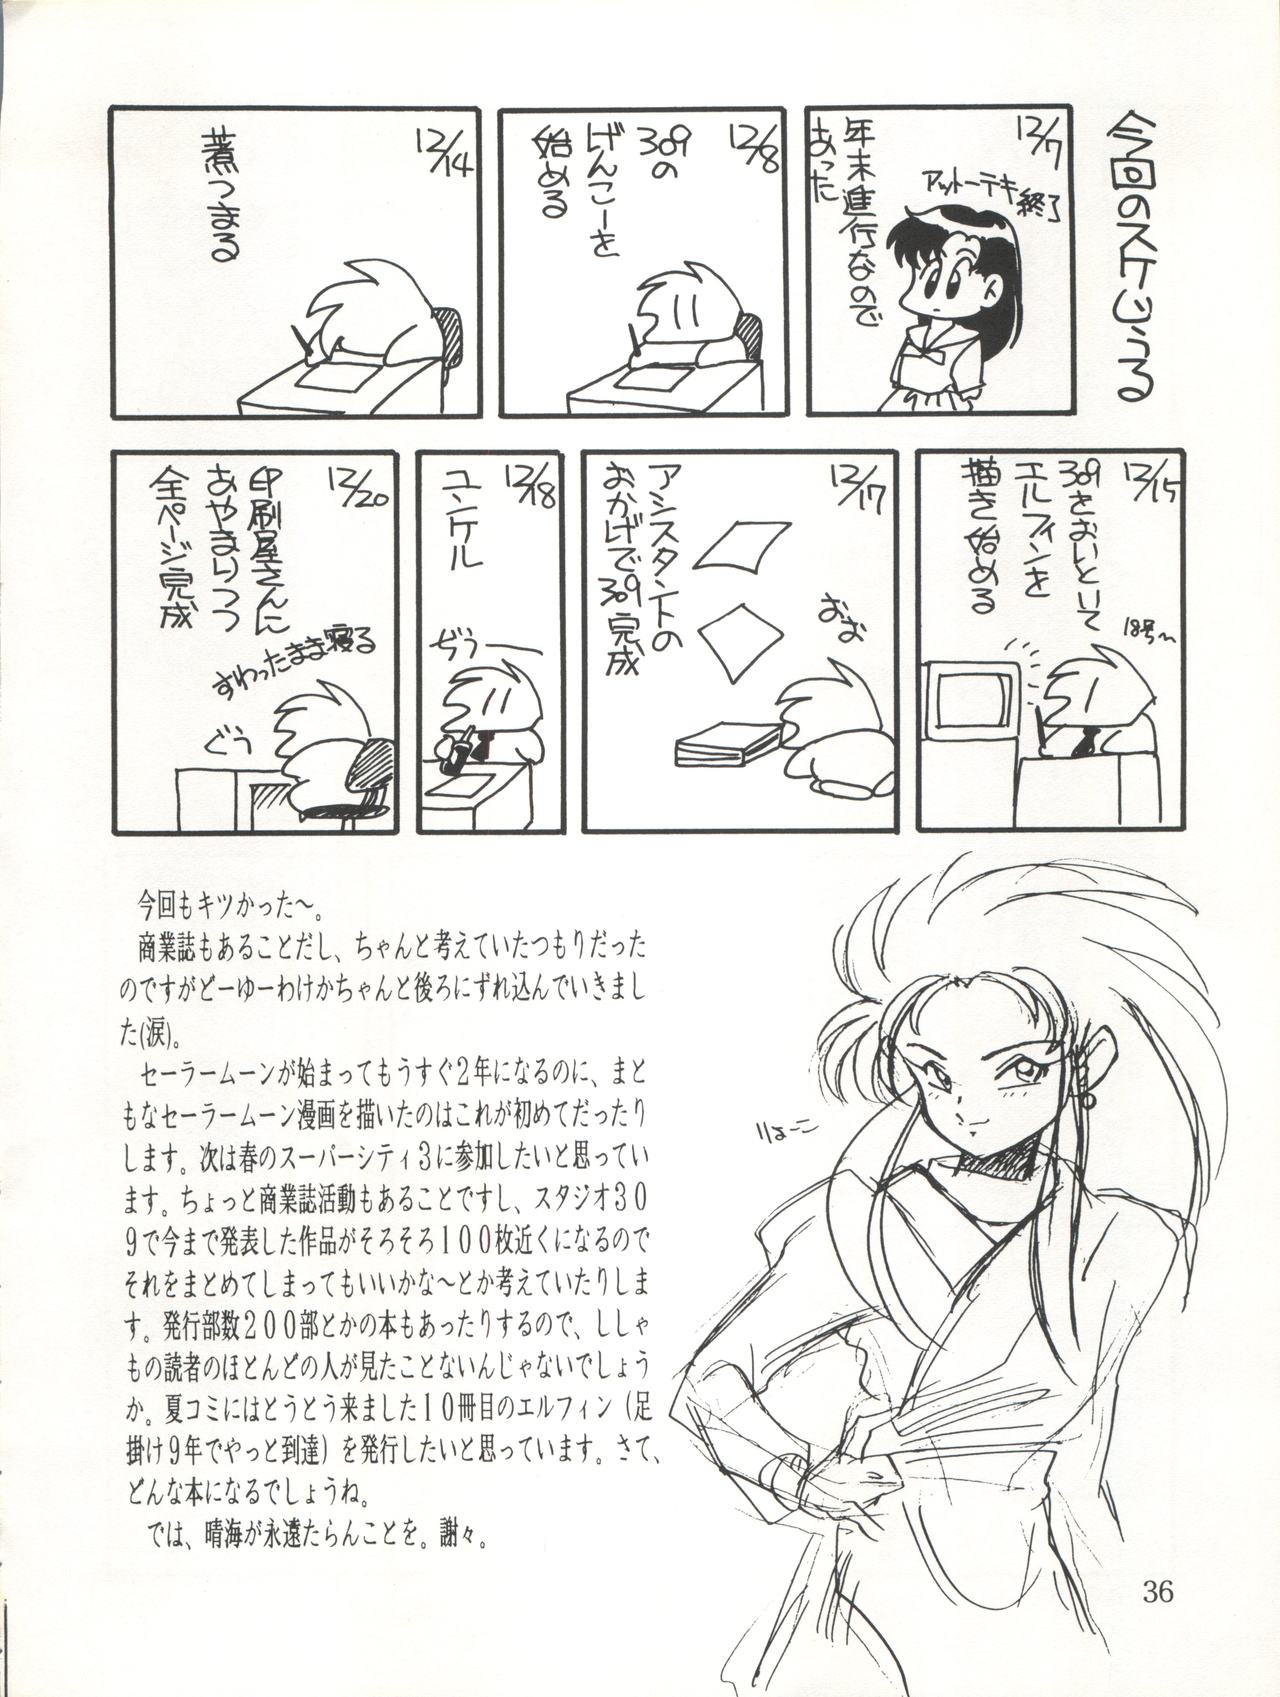 今回のスケじうる
12/7
年末進行なので
あった
アットーテキ
終了
12/8
309の
げんこーを
始める
12/14
煮つまる
12/15
309をおいといて
エルフィンを
描き始める
18号〜
12/17
アシスタントの
おかげで309完成
おお
12/18
ユンケル
ぢぅー
12/20
印刷屋さんに
あやまりつつ
全ページ完成
すわったまま寝る
ぐう
今回もキツかった〜。
商業誌もあることだし、ちゃんと考えていたつもりだった
のですがどーゆーわけかちゃんと後ろにずれ込んでいきまし
た(涙)。
セーラームーンが始まってもうすぐ2年になるのに、まと
もなセーラームーン漫画を描いたのはこれが初めてだったり
します。次は春のスーパーシティ3に参加したいと思ってい
ます。ちょっと商業誌活動もあることですし、スタジオ30
9で今まで発表した作品がそろそろ100枚近くになるので
それをまとめてしまってもいいかな〜とか考えていたりしま
す。発行部数200部とかの本もあったりするので、ししゃ
もの読者のほとんどの人が見たことないんじゃないでしょう
か。夏コミにはとうとう来ました10冊目のエルフィン（足
掛け9年でやっと到達）を発行したいと思っています。さて、
どんな本になるでしょうね。
では、晴海が永遠たらんことを。謝々。
りょーこ
36